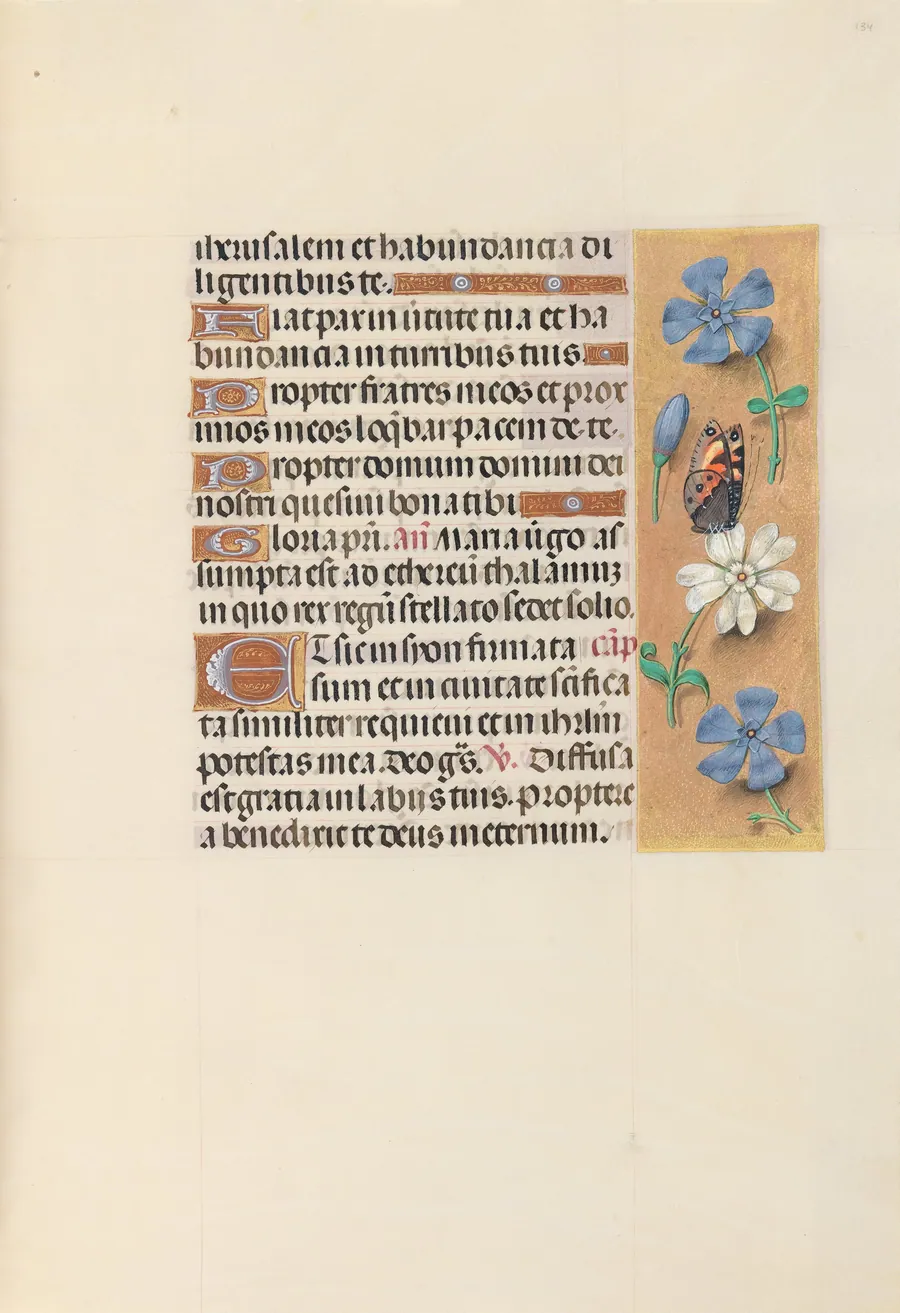 134
iherusalem et habundancia di
ligentibus te.
Fiat pax in ũtute tua et ha
bundancia in turribus tuis.
Propter fratres meos et prox
imos meos loq̃bar pacem de te.
Propter domum domini dei
nostri quesiui bona tibi
Gloria pr̃i. añ Maria ũgo as
sumpta est ad ethereũ thalamuz
in quo rex regũ stellato sedet solio.
ET sic in syon firmata cãp
sum et in ciuitate sc̃ifica
ta similiter requieui et in ihrl̃m
potestas mea. Deo gr̃s. V̾. Diffusa
est gratia in labijs tuis. Proptere
a benedixit te deus in eternum.